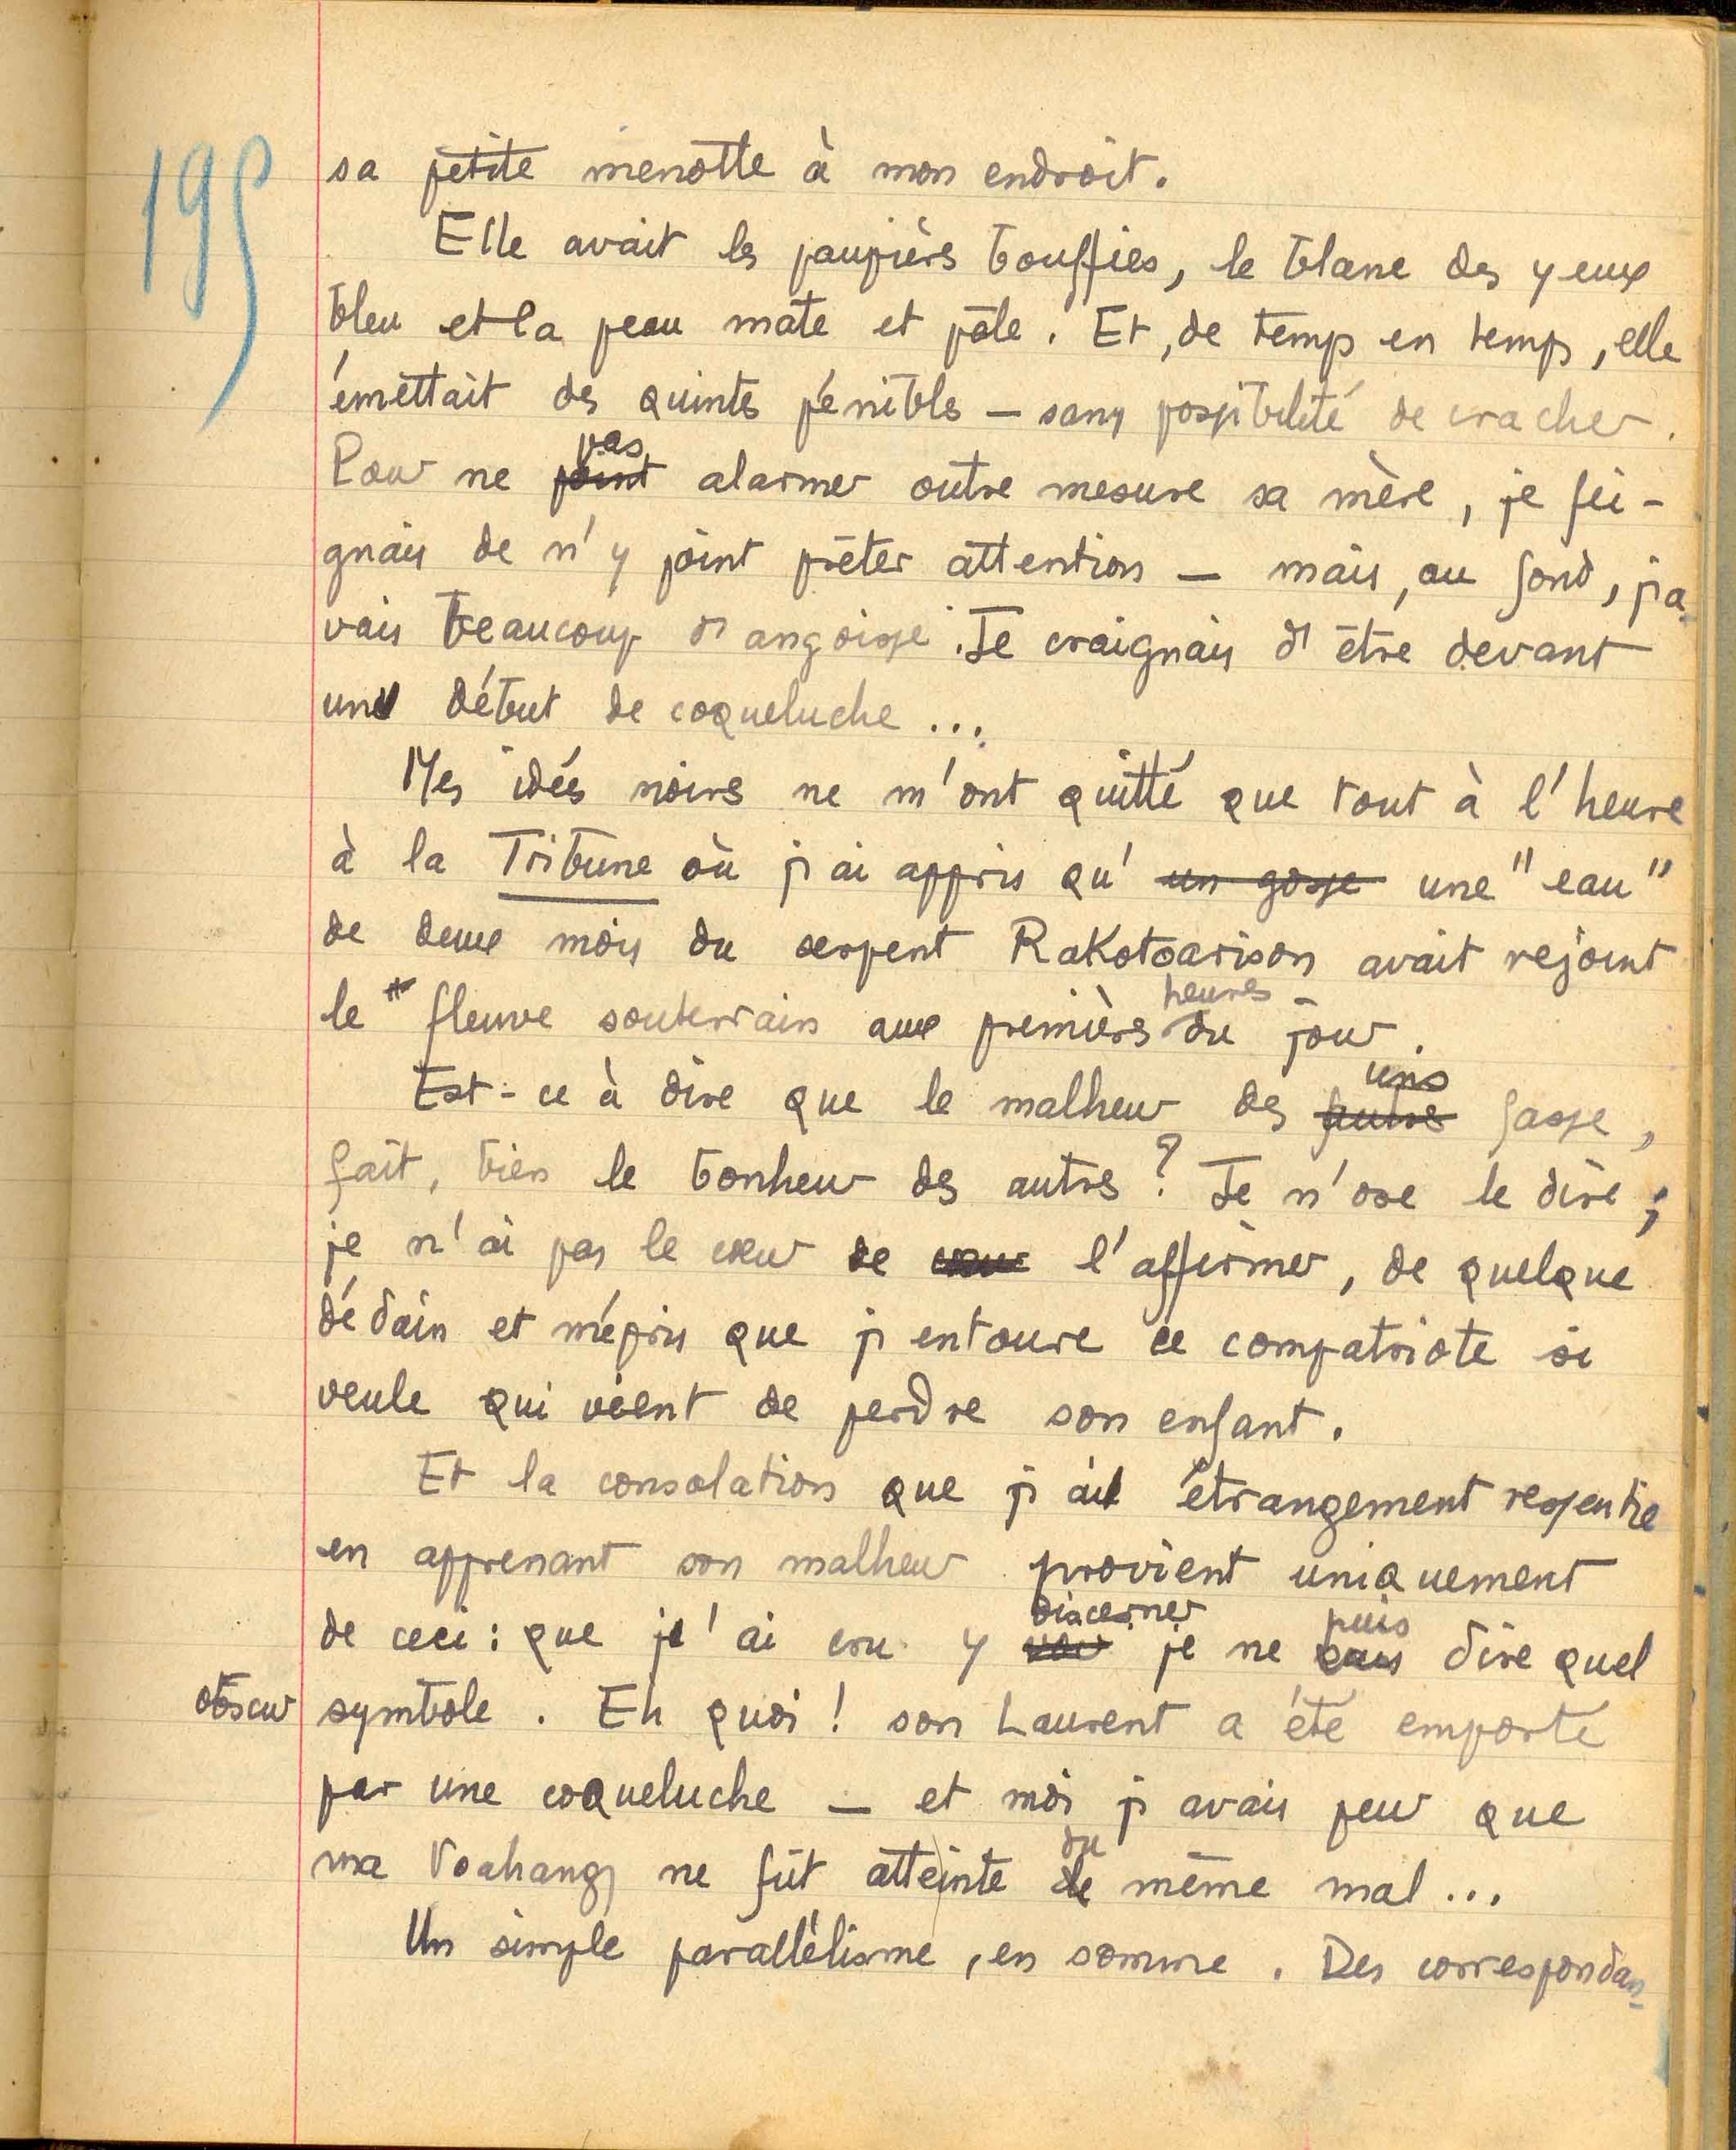 195
sa petite menotte à mon endroit.
Elle avait les paupières bouffies, le blanc des yeux
bleu et la peau mate et pâle. Et, de temps en temps, elle
émettait des quintes pénibles — sans possibilité de cracher.
pas
Pour ne point alarmer outre mesure sa mère, je fei-
gnais de n'y point prêter attention — mais, au fond, j'a-
vais beaucoup d'angoisse. Je craignais d'être devant
un début de coqueluche ...
Mes idées noires ne m'ont quitté que tout à l'heure
à la Tribune où j'ai appris qu' un gosse une "eau"
de deux mois du serpent Rakotoarison avait rejoint
heures
le fleuve souterrain aux premières du jour.
uns
Est-ce à dire que le malheur des fasse,
fait, bien le bonheur des autres ? Je n'ose le dire ;
je n'ai pas le cœur de cœur l'affirmer, de quelque
dédain et mépris que j'entoure ce compatriote si
veule qui vient de perdre son enfant.
Et la consolation que j'ai étrangement ressentie
en apprenant son malheur provient uniquement
discerner puis
de ceci : que j'ai cru y voir je ne sais dire quel
obscur symbole. Eh quoi ! son Laurent a été emporté
par une coqueluche — et moi j'avais peur que
du
ma Voahangy ne fût atteinte de même mal ...
Un simple parallélisme, en somme. Des correspondan-